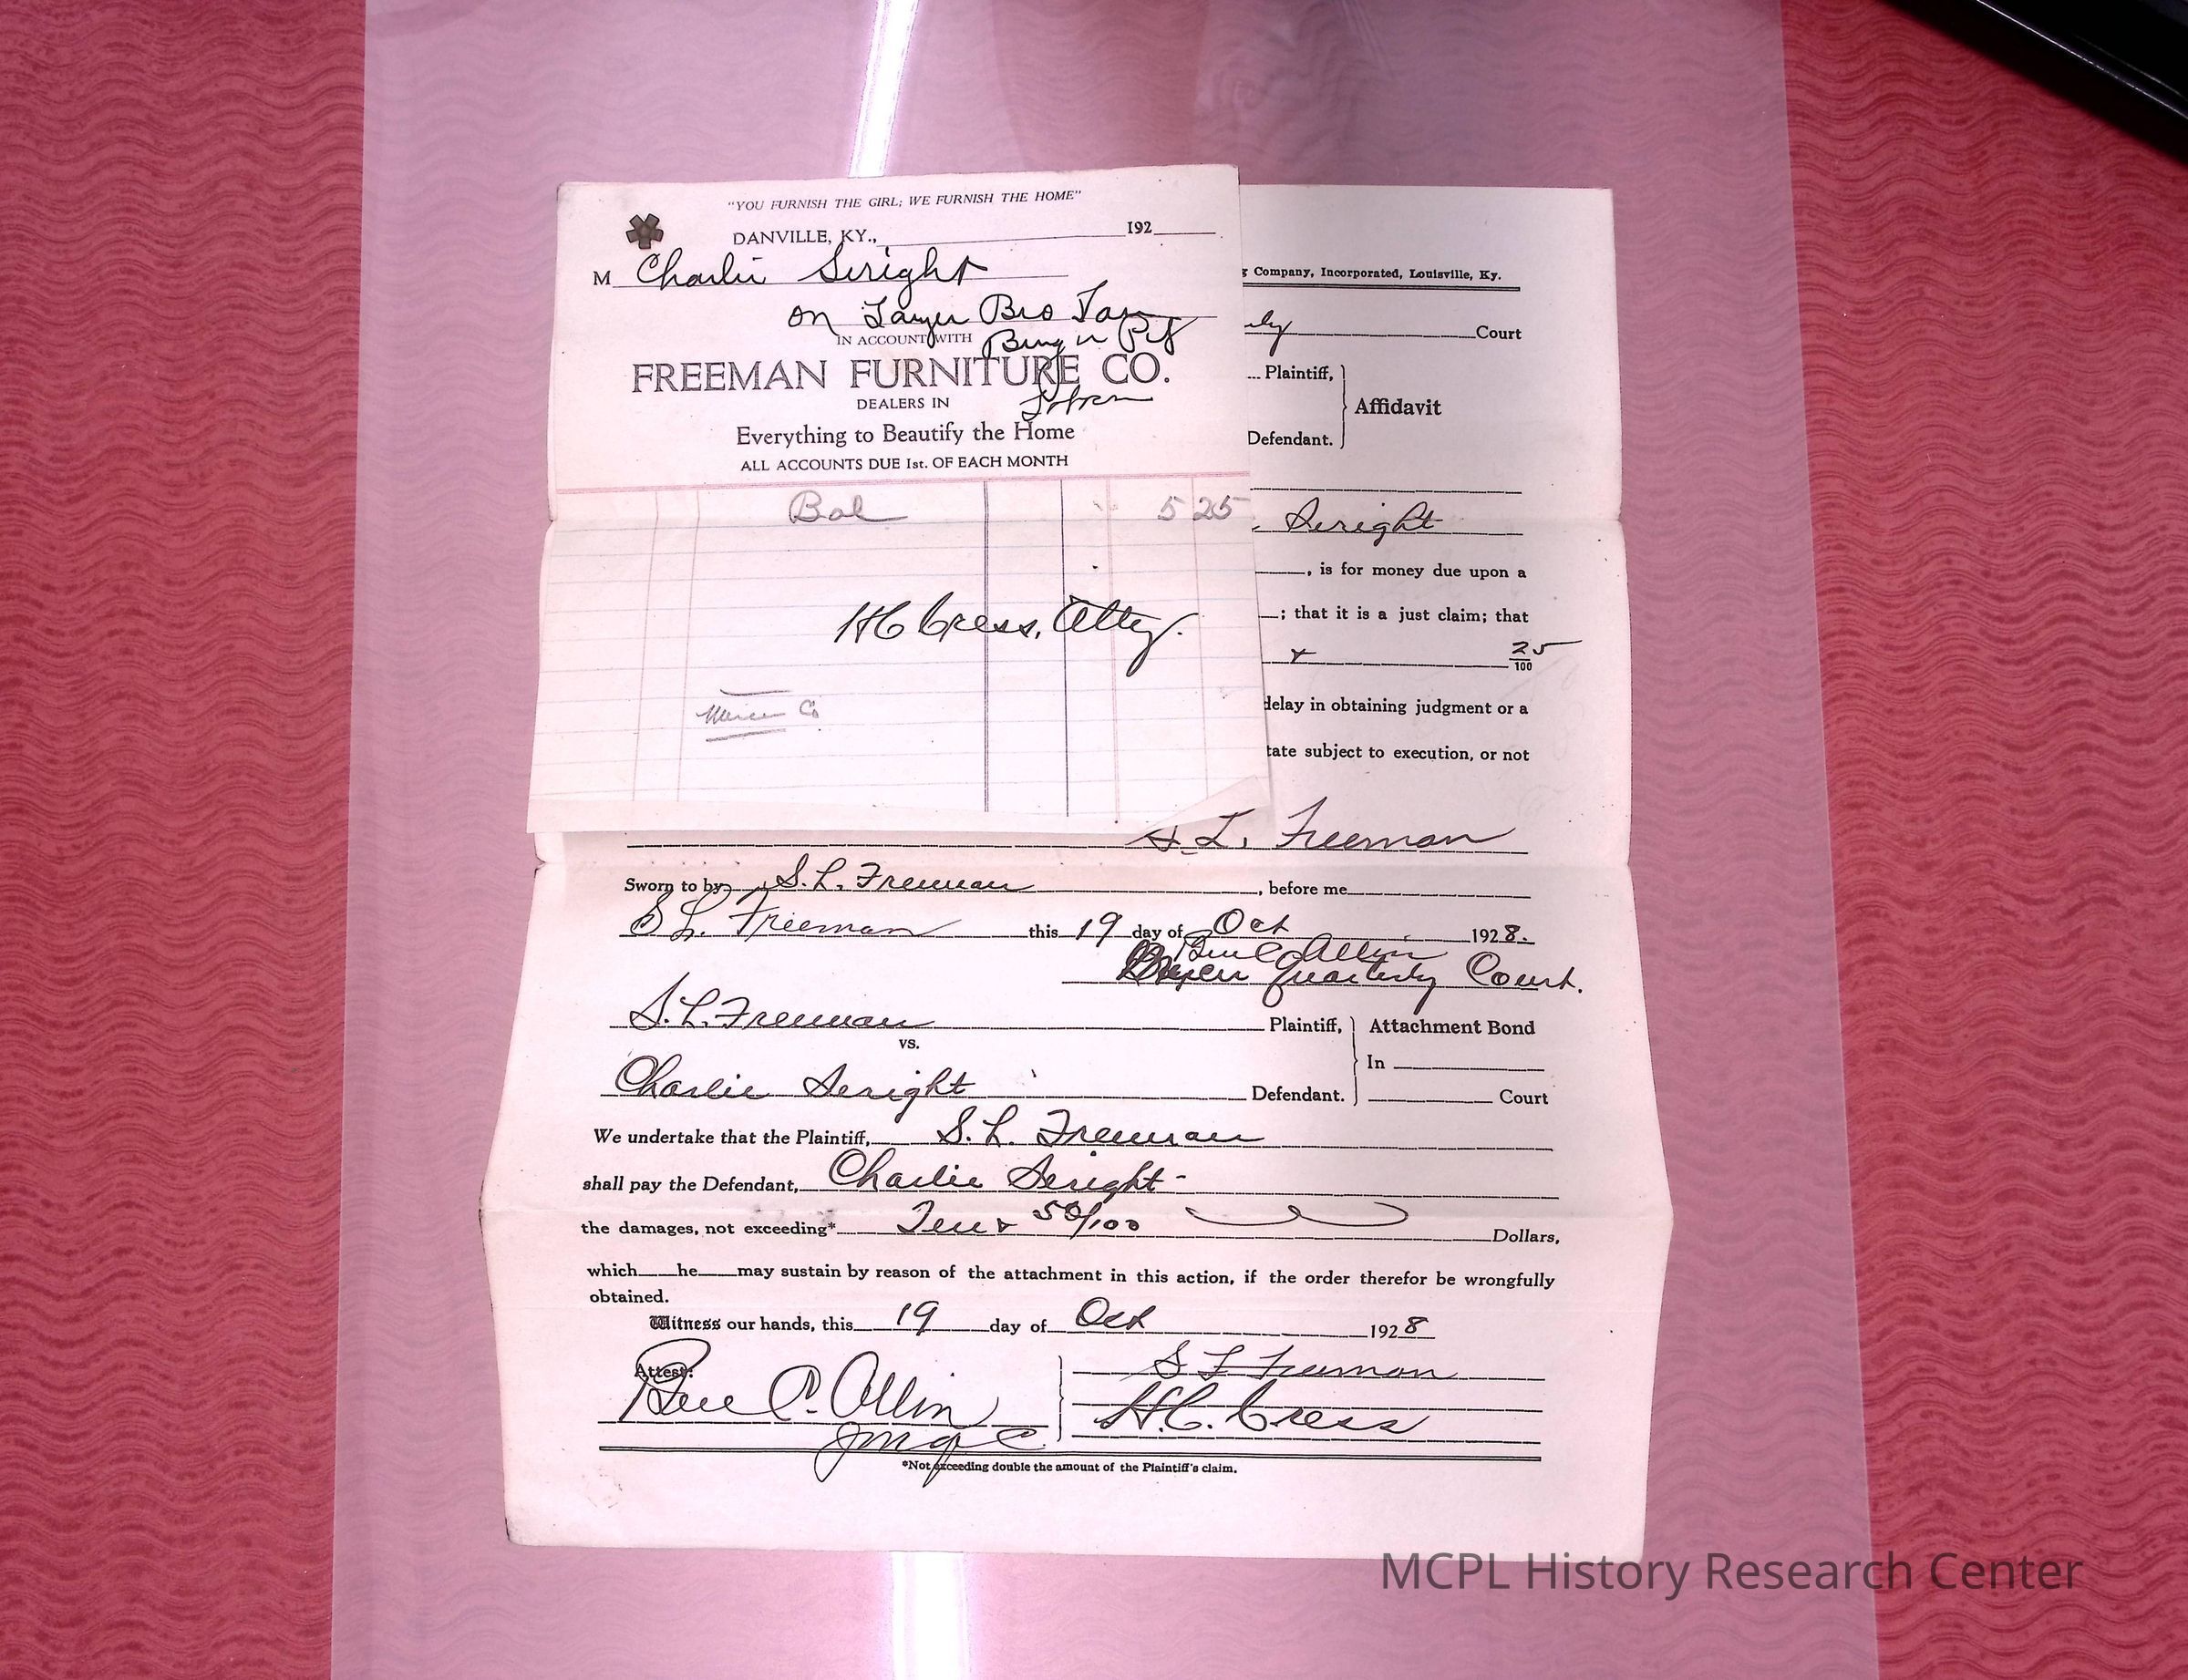 "YOU FURNISH THE GIRL; WE FURNISH THE HOME"
DANVILLE, KY., 192
M Charlie Seright
on Bro
IN ACCOUNT WITH
FREEMAN FURNITURE CO.
DEALERS IN
Everything to Beautify the Home
ALL ACCOUNTS DUE 1st. OF EACH MONTH
Bal 5 25
HC Cress, Atty.
Mercer Co
Company, Incorporated, Louisville, Ky.
ly Court
Plaintiff,
Affidavit
Defendant.
Seright
, is for money due upon a
; that it is a just claim; that
& 25/100
delay in obtaining judgment or a
tate subject to execution, or not
S. L. Freeman
Sworn to by S. L. Freeman, before me
S L. Freeman this 19 day of Oct 1928.
Ben C Allin
Quarterly Court.
S. L. Freeman Plaintiff,
Attachment Bond
vs.
In
Charlie Seright Defendant.
Court
We undertake that the Plaintiff, S. L. Freeman
shall pay the Defendant, Charlie Seright -
the damages, not exceeding* Ten & 50/100 Dollars,
which he may sustain by reason of the attachment in this action, if the order therefor be wrongfully
obtained.
Witness our hands, this 19 day of Oct 1928
Attest:
S L Freeman
Ben C. Allin
H.C. Cress
*Not exceeding double the amount of the Plaintiff's claim.
MCPL History Research Center